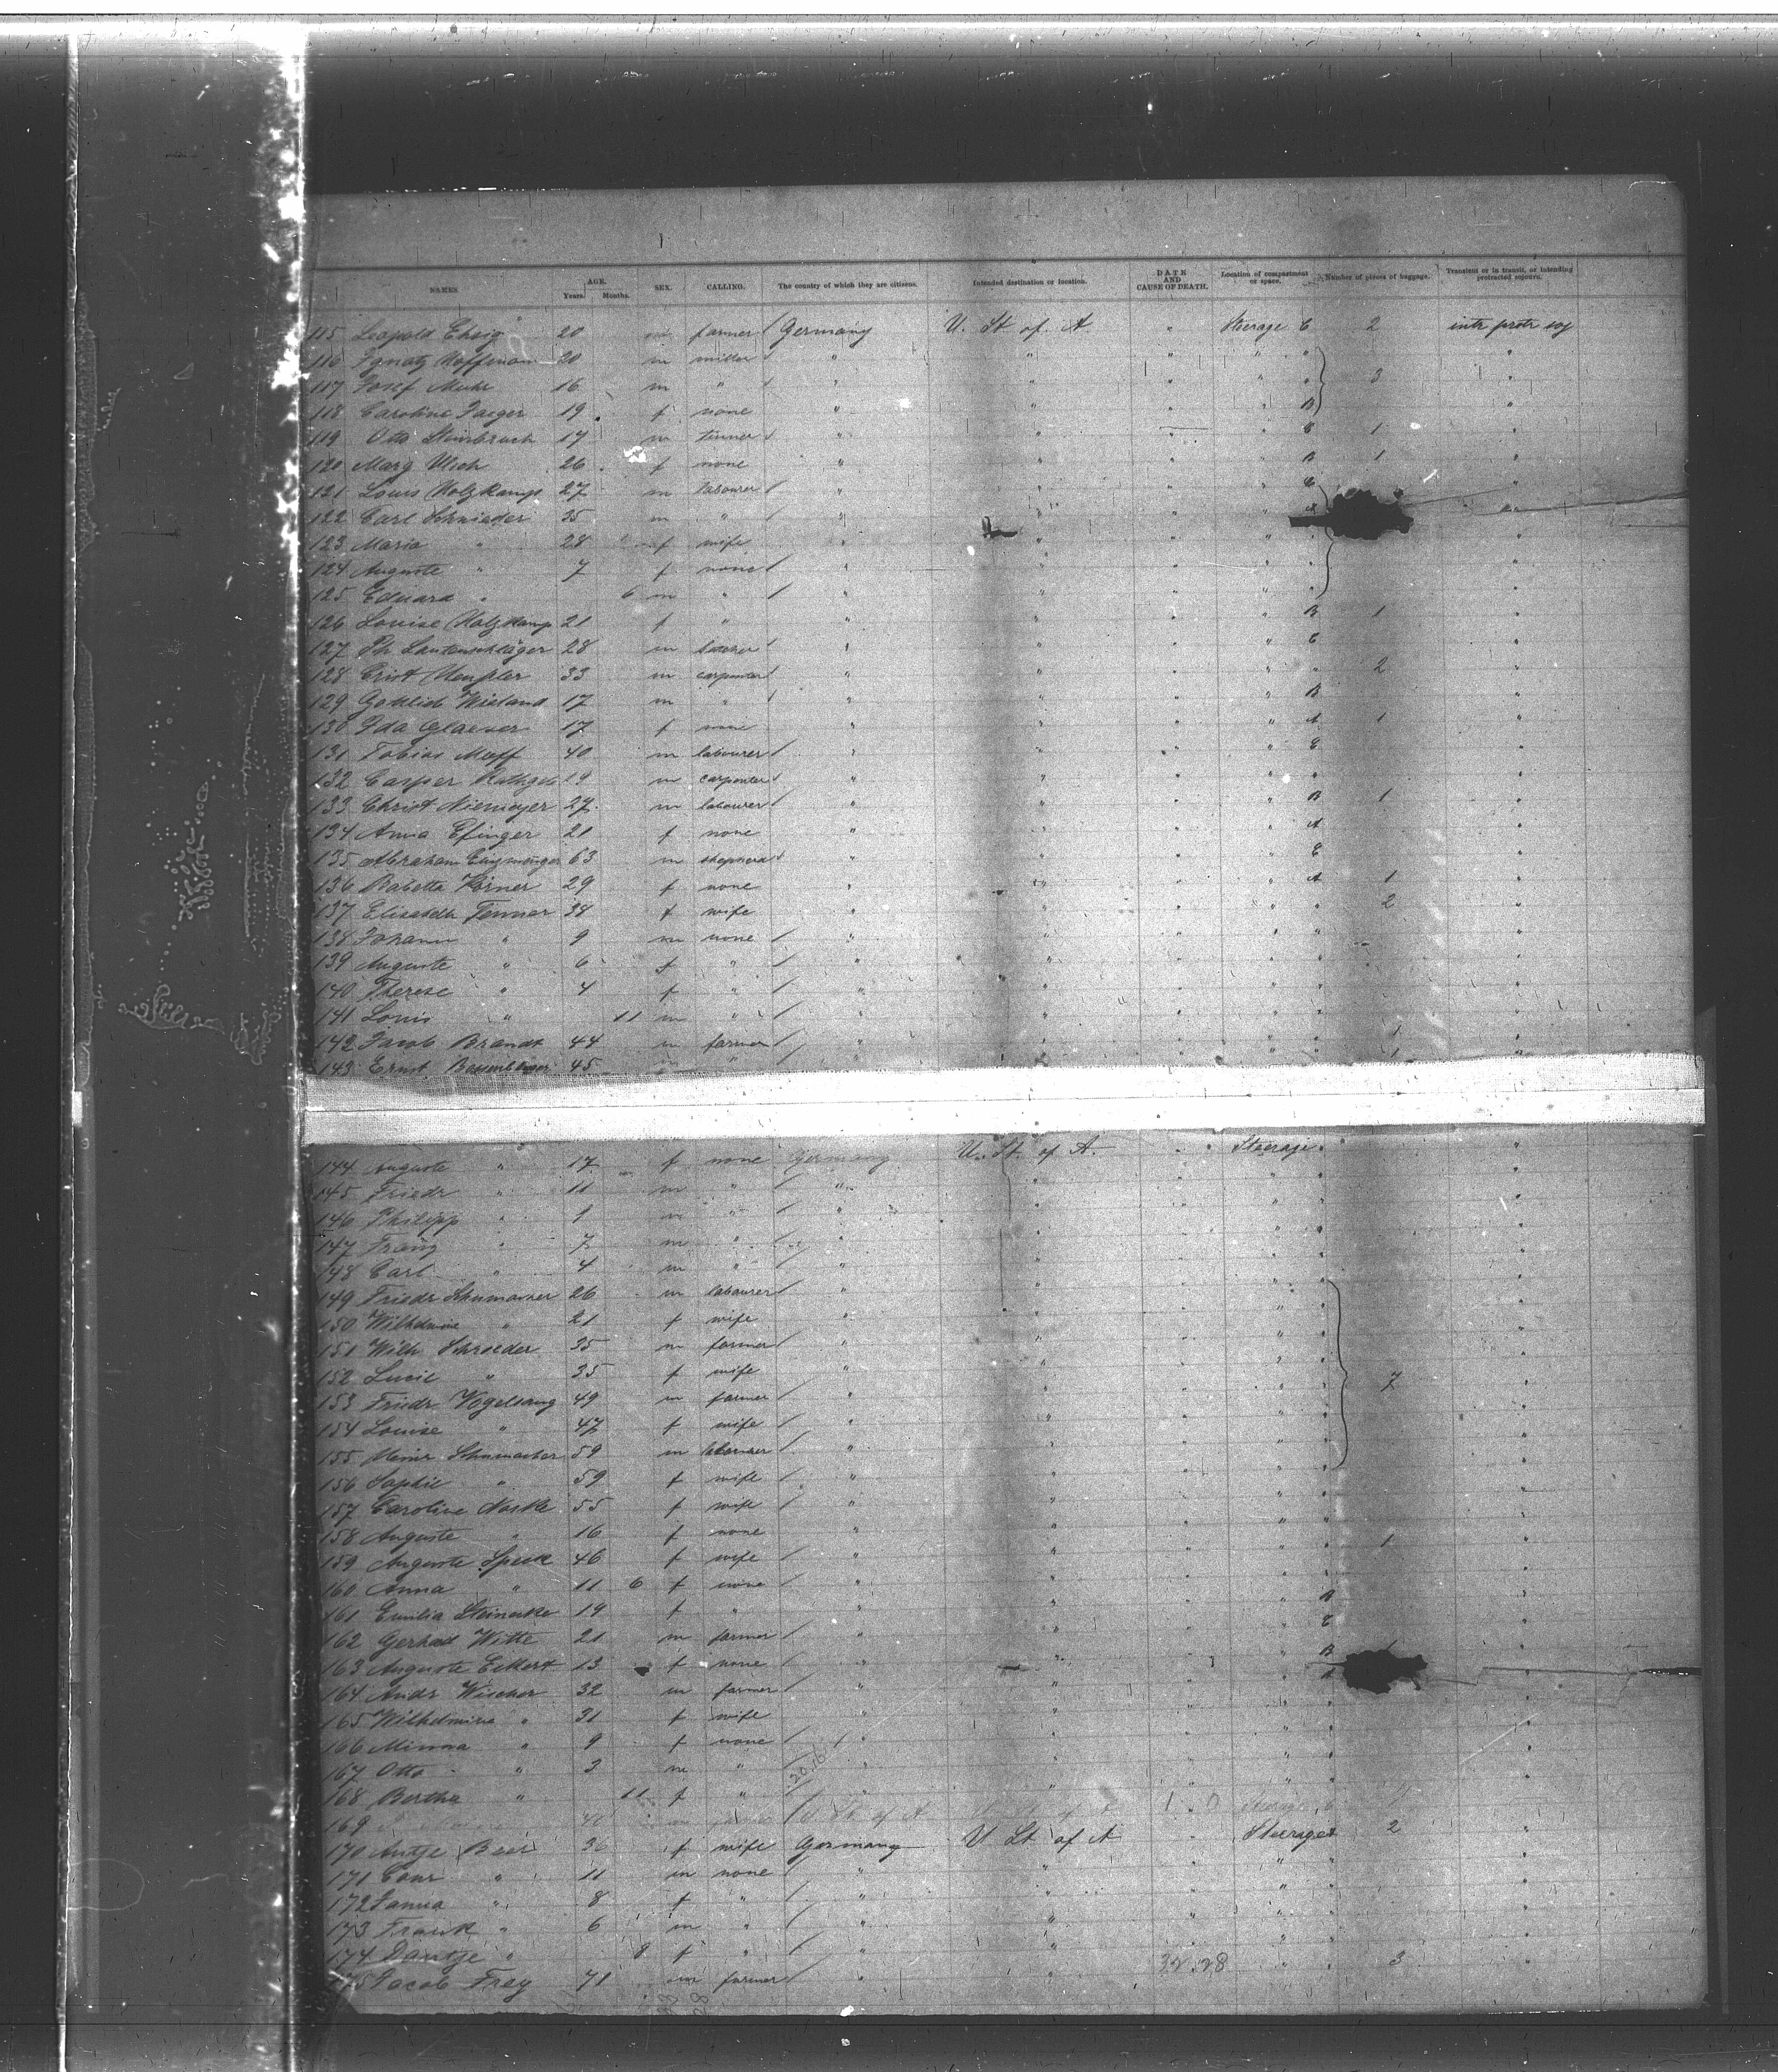 NAMES. AGE. Years. Months. SEX. CALLING. The country of which they are citizens. Intended destination or location. DATE AND CAUSE OF DEATH. Location of compartment or space. Number of pieces of baggage. Transient or in transit, or intending protracted sojourn.
115 Leopold 20 m farmer / Germany U. St. of A. " Steerage C 2 intr protr soj
116 Ignatz Hoffmann 20 m miller " " " " "
117 Josef Muhr 16 m " / " " " " 3
118 Caroline Jaeger 19 f none " " " B "
119 Otto Steinbruch 17 m tinner " " " " C 1 "
120 Marg 26 f none " " " " B 1 "
121 Louis Holzkamp 27 m labourer / " " " " C "
122 Carl Schnieder 35 m " / " " " "
123 Maria " 28 f wife " " " " "
124 Auguste " 7 f none / " " " " "
125 Eduard " 6 m " / " " " " "
126 Louise Holzkamp 21 f " " " " " B 1 "
127 Ph Lautenschläger 28 m / " " " " C
128 33 m carpenter / " " " " 2 "
129 Gottlieb Wieland 17 m " / " " " " B "
130 Ida Glaeser 17 f none " " " " A 1 "
131 Tobias 40 m labourer / " " " " C "
132 Casper m carpenter " " " " "
133 Christ Niemeyer 27 m labourer / " " " " B 1 "
134 Anna Efinger 21 f none " " " " A "
135 Abraham 63 m shepherd " " " " C "
136 Babette Körner 29 f none " " " " A 1 "
137 Elisabeth Tenner 34 f wife " " " " " 2 "
138 Johann " 9 m none / " " " " "
139 Auguste " 6 f " / " " " " "
140 Therese " 4 f " / " " " " "
141 Louis " 11 m " / " " " " "
142 Jacob Brandt 44 m farmer / " " " " 1 "
143 Ernst 45 m " / " " " " 1 "
144 Auguste " 17 f none Germany U. St. of A. " Steerage "
145 Friedr " 11 m " / " " " " "
146 Philipp " m " / " " " " "
147 Franz " 7 m " / " " " " "
148 Carl " 4 m " / " " " " "
149 Friedr Schumacher 26 m labourer / " " " " "
150 Wilhelmine " 21 f wife " " " " "
151 Wilh Schroeder 35 m farmer / " " " " "
152 Lucie " 35 f wife " " " " " 7
153 Friedr Vogelsang 49 m farmer / " " " " "
154 Louise " 47 f wife / " " " " "
155 Heinr Schumacher 59 m labourer / " " " " "
156 Sophie " 59 f wife / " " " " "
157 Caroline Noske 55 f wife / " " " " "
158 Auguste " 16 f none " " " " "
159 Auguste 46 f wife / " " " " 1 "
160 Anna " 11 6 f none / " " " " "
161 Emilia Steinecke 19 f " " " " " "
162 Gerhard Witte 21 m farmer / " " " " C "
163 Auguste Eckert 13 f none / " " " " B "
164 Andr Wischer 32 m farmer / " " " "
165 Wilhelmine " 31 f wife " " " " "
166 Minna " 9 f none / " " " " "
167 Otto " 3 m " / " " " " "
168 Bertha " 11 f " / " " " " "
169 40 m / U St of A
170 Antje Beer 36 f wife Germany U St of A " Steerage 2 "
171 " 11 m none / " " " " "
172 " 8 f " / " " " " "
173 Frank " 6 m " / " " " " "
174 " 8 f " / " " " "
175 Jacob Frey 71 m farmer / " " 32.28 " 3 "